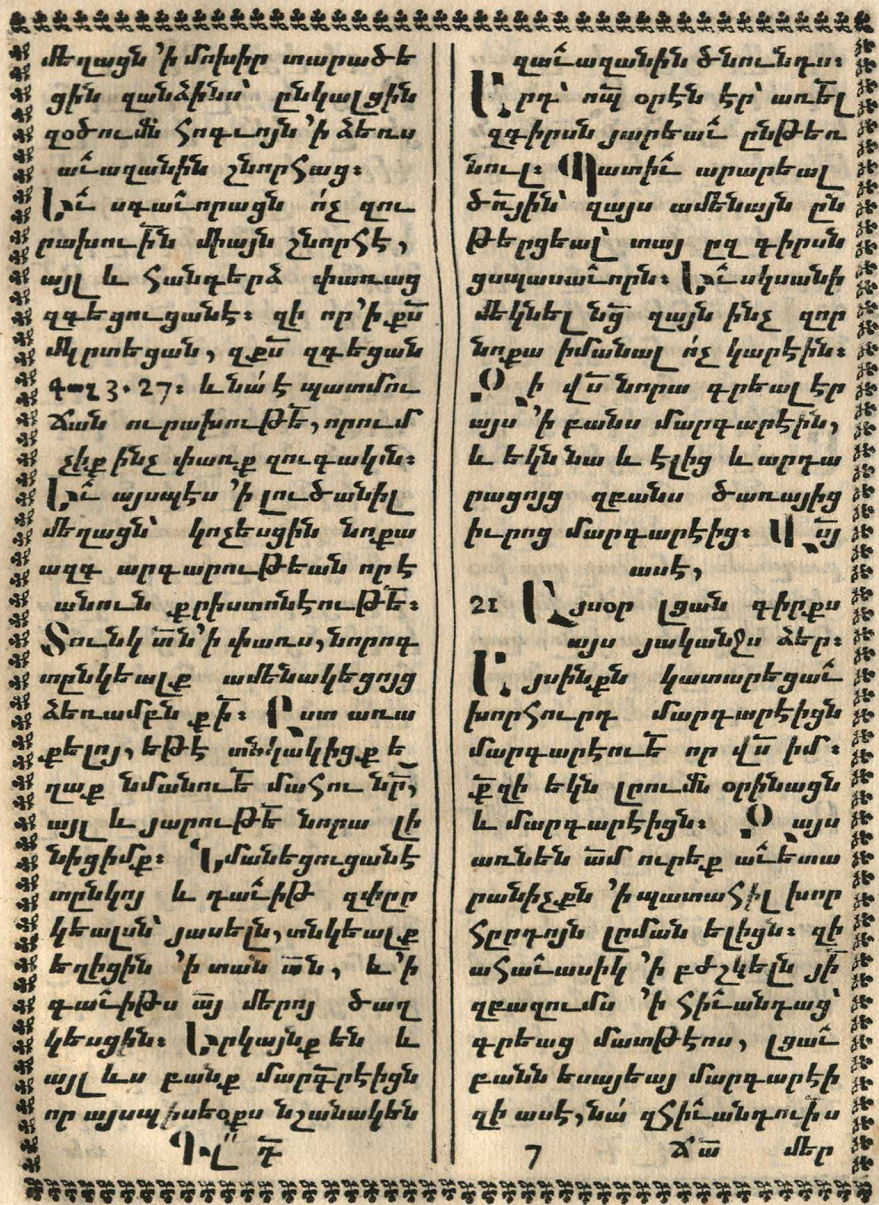 մեղացն ՛ի մոխիր տարածե
ցին զանձինս՝ ընկալցին
զօծումն հոգւոյն ՛ի ձեռս
աւ̂ազանին շնորհաց։
Եւ̂ սգաւ̂որացն ո՛չ զու
րախուի̅ն միայն շնորհէ,
այլ և հանդերձ փառաց
զգեցուցանէ։ զի որ ՛ի քս̅
մկրտեցան, զքս̅ զգեցան
գաղ 3․27։ և նա՛ է պատմու
ճան ուրախութե̅, որում
չիք ինչ փառք զուգակն։
Եւ̂ այսպէս ՛ի լուծանիլ
մեղացն՝ կոչեսցին նոքա
ազգ արդարութեան որ է
անուն քրիստոնէութե̅։
Տունկ տն̅ ՛ի փառս, նորոգ
տընկեալք ամենակեցոյց
ձեռամբն քի̅։ Ըստ առա
քելոյ, եթէ տնկակիցք ե
ղաք նմանուե̅ մահու նր̅,
այլ և յարութե̅ նորա լի
նիցիմք։ Նմանեցուցանէ
տընկոյ և դաւ̂իթ զփըր
կեալսն՝ յասելն, տնկեալք
եղիցին ՛ի տան տն̅, և ՛ի
գաւ̂իթս ա̅յ մերոյ ծաղ
կեսցին։ Երկայնք են և
այլ ևս բանք մարգրէ̅իցն
որ այսպիսեօքս նշանակեն
7
զաւ̂ազանին ծնունդս։
Արդ՝ ոպ̅ օրէն էր՝ առե̅լ
զգիրսն յարեաւ̂ ընթեռ
նուլ։ Պատիւ̂ արարեալ
ծռ̅յին՝ զայս ամենայն ըն
թերցեալ՝ տայ ըզ գիրսն
ցսպասաւ̂որն։ Եւ̂ սկսանի
մեկնել նց̅ զայն ինչ զոր
նոքա իմանալ ո՛չ կարէին։
Զի վս̅ նորա գրեալ էր
այս ՛ի բանս մարգարէին,
և եկն նա և էլից և արդա
րացոյց զբանս ծառայից
իւրոց մարգարէից։ Վս̅յ
ասէ,
21 Այսօր լցան գիրքս
այս յականջս ձեր։
Այսինքն կատարեցաւ̂
խորհուրդ մարդարէիցն
մարգարէուե̅ որ վս̅ իմ։
ք̅զի եկն լրումն օրինացն
և մարգարէիցն։ Զայս
առնեն ա̅մ ուրեք աւ̂ետա
րանիչքն ՛ի պատահիլ խոր
հըրդոյն լըման ելիցն։ զի
ահաւ̂ասիկ ՛ի բժշկելն յի̅
զբազումս ՛ի հիւ̂անդաց՝
գրեաց մատթէոս, լցաւ̂
բանն եսայեայ մարգարէի
զի ասէ, նա՛ զհիւ̂անդուիս
մեր